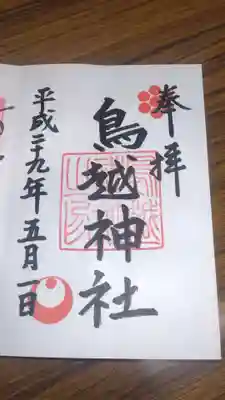 奉拝
鳥越神社
平成二九年五月一日